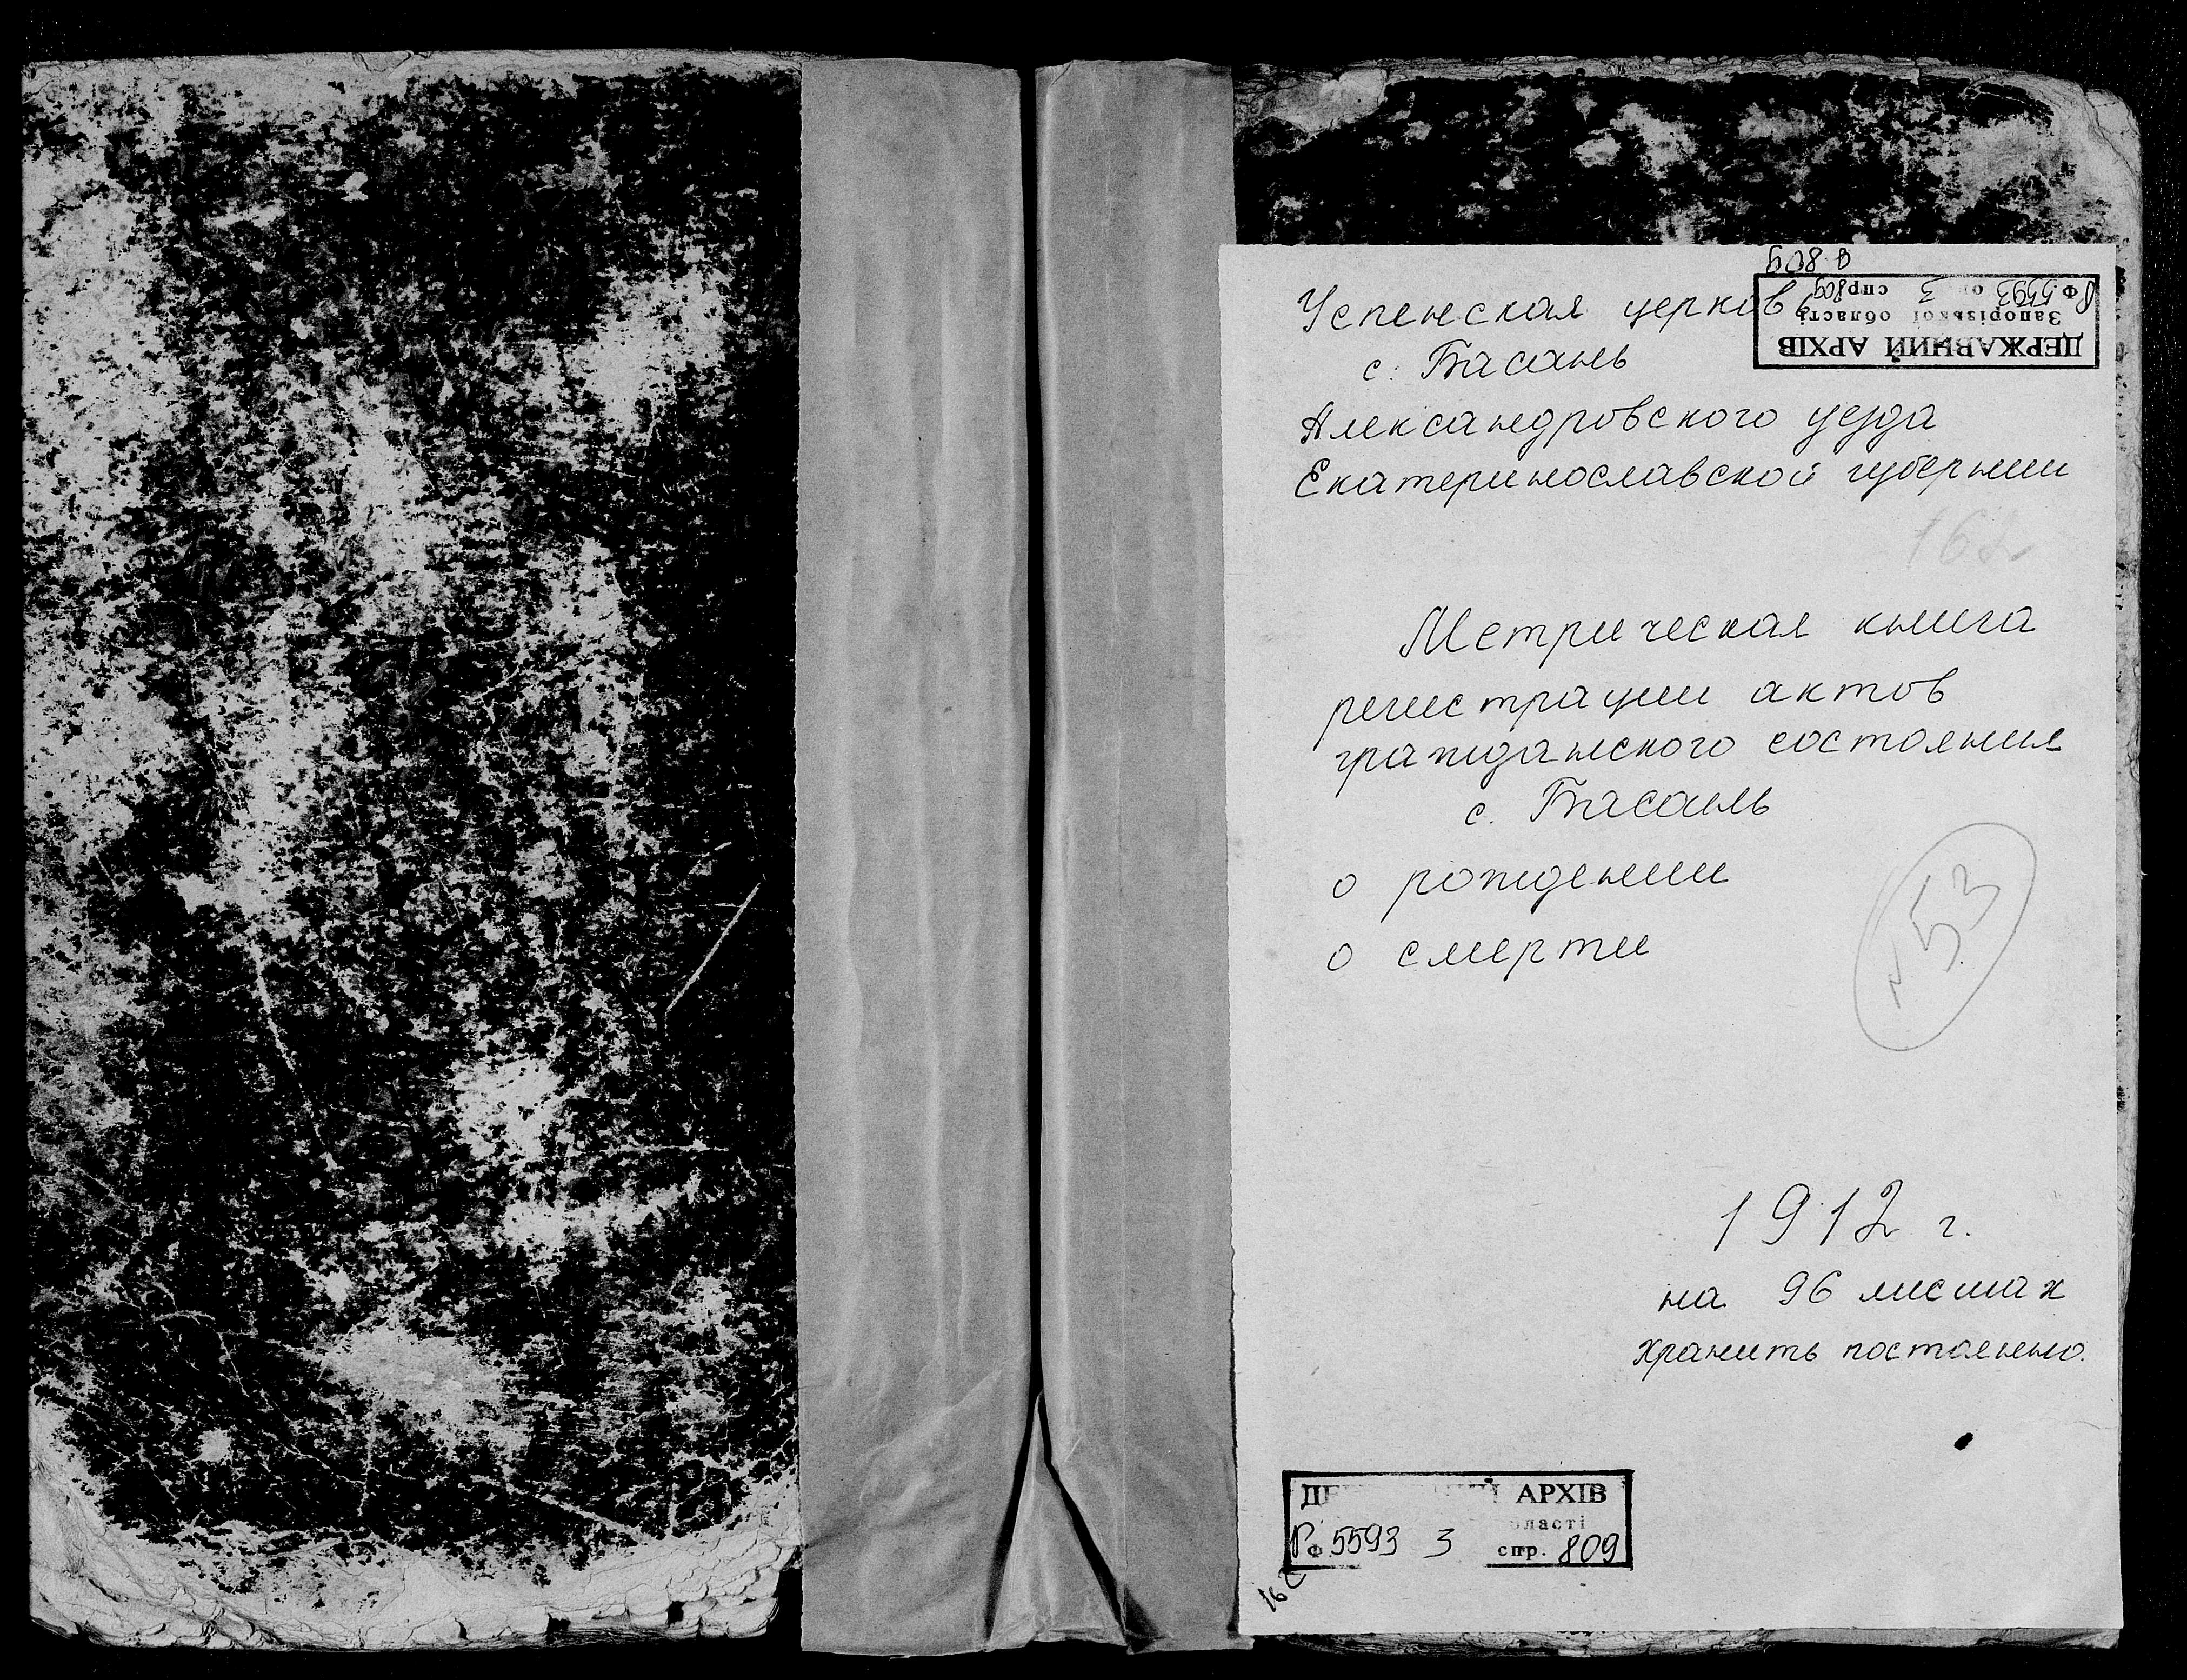 Успенская церковь
с. Басань
Александровского уезда
Екатеринославской губернии
ДЕРЖАВНИЙ АРХІВ
Запорізької області
Ф. Р 5593 оп 3 спр 809
162
Метрическая книга
регистрации актов
гражданского состояния
с. Басань
о рождении
о смерти
N 53
1912 г.
на 96 листах
хранить постоянно.
АРХІВ
Р Ф 5593 3 спр. 809
162